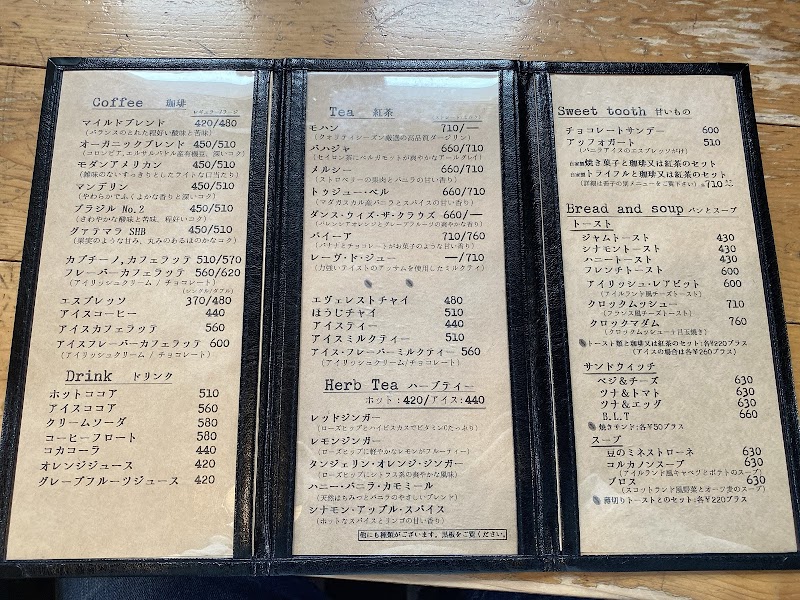 Coffee 珈琲
レギュラー/ラージ
マイルドブレンド 420/480
(バランスのとれた程好い酸味と苦味)
オーガニックブレンド 450/510
(コロンビア,エルサルバドル産有機豆、深いコク)
モダンアメリカン 450/510
(雑味のないすっきりとしたライトな口当たり)
マンデリン 450/510
(やわらかでふくよかな香りと深いコク)
ブラジル No.2 450/510
(さわやかな酸味と苦味、程好いコク)
グァテマラ SHB 450/510
(果実のような甘み、丸みのあるほのかなコク)
カプチーノ,カフェラッテ 510/570
フレーバーカフェラッテ 560/620
(アイリッシュクリーム / チョコレート)
(シングル/ダブル)
エスプレッソ 370/480
アイスコーヒー 440
アイスカフェラッテ 560
アイスフレーバーカフェラッテ 600
(アイリッシュクリーム / チョコレート)
Drink ドリンク
ホットココア 510
アイスココア 560
クリームソーダ 580
コーヒーフロート 580
コカコーラ 440
オレンジジュース 420
グレープフルーツジュース 420
Tea 紅茶
モハン 710/—
(クオリティシーズン厳選の高品質ダージリン)
パハジャ 660/710
(セイロン茶にベルガモットが爽やかなアールグレイ)
メルシー 660/710
(ストロベリーの果肉とバニラの甘い香り)
トゥジュー・ベル 660/710
(マダガスカル産バニラとスパイスの甘い香り)
ダンス・ウィズ・ザ・クラウズ 660/—
(バレンシアオレンジとグレープフルーツの爽やかな香り)
パイーア 710/760
(バナナとチョコレートがお菓子のような甘い香り)
レーヴ・ド・ジュー —/710
(力強いテイストのアッサムを使用したミルクティ)
エヴェレストチャイ 480
ほうじチャイ 510
アイスティー 440
アイスミルクティー 510
アイス・フレーバー・ミルクティー 560
(アイリッシュクリーム/チョコレート)
Herb Tea ハーブティー
ホット:420/アイス:440
レッドジンガー
(ローズヒップとハイビスカスでビタミンCたっぷり)
レモンジンガー
(ローズヒップに軽やかなレモンがフルーティー)
タンジェリン・オレンジ・ジンガー
(ローズヒップにシトラス茶の爽やかな風味)
ハニー・バニラ・カモミール
(天然はちみつとバニラのやさしいブレンド)
シナモン・アップル・スパイス
(ホットなスパイスとリンゴの甘い香り)
他にも種類がございます。黒板をご覧ください。
Sweet tooth 甘いもの
チョコレートサンデー 600
アッフォガート 510
(バニラアイスのエスプレッソがけ)
自家製焼き菓子と珈琲又は紅茶のセット
自家製トライフルと珈琲又は紅茶のセット
(詳細は菓子の葉メニューをご覧下さい) 各710
Bread and soup パンとスープ
トースト
ジャムトースト 430
シナモントースト 430
ハニートースト 430
フレンチトースト 600
アイリッシュ・レアビット 600
(アイルランド風チーズトースト)
クロックムッシュー 710
(フランス風チーズトースト)
クロックマダム 760
(クロックムッシュー+目玉焼き)
トースト類と珈琲又は紅茶のセット:各¥220プラス
(アイスの場合は各¥260プラス)
サンドウィッチ
ベジ&チーズ 630
ツナ&トマト 630
ツナ&エッグ 630
B.L.T 660
焼きサンド:各¥50プラス
スープ
豆のミネストローネ 630
コルカノンスープ 630
(アイルランド風キャベツとポテトのスープ)
ブロス 630
(スコットランド風野菜とオーツ麦のスープ)
薄切りトーストとのセット:各¥220プラス